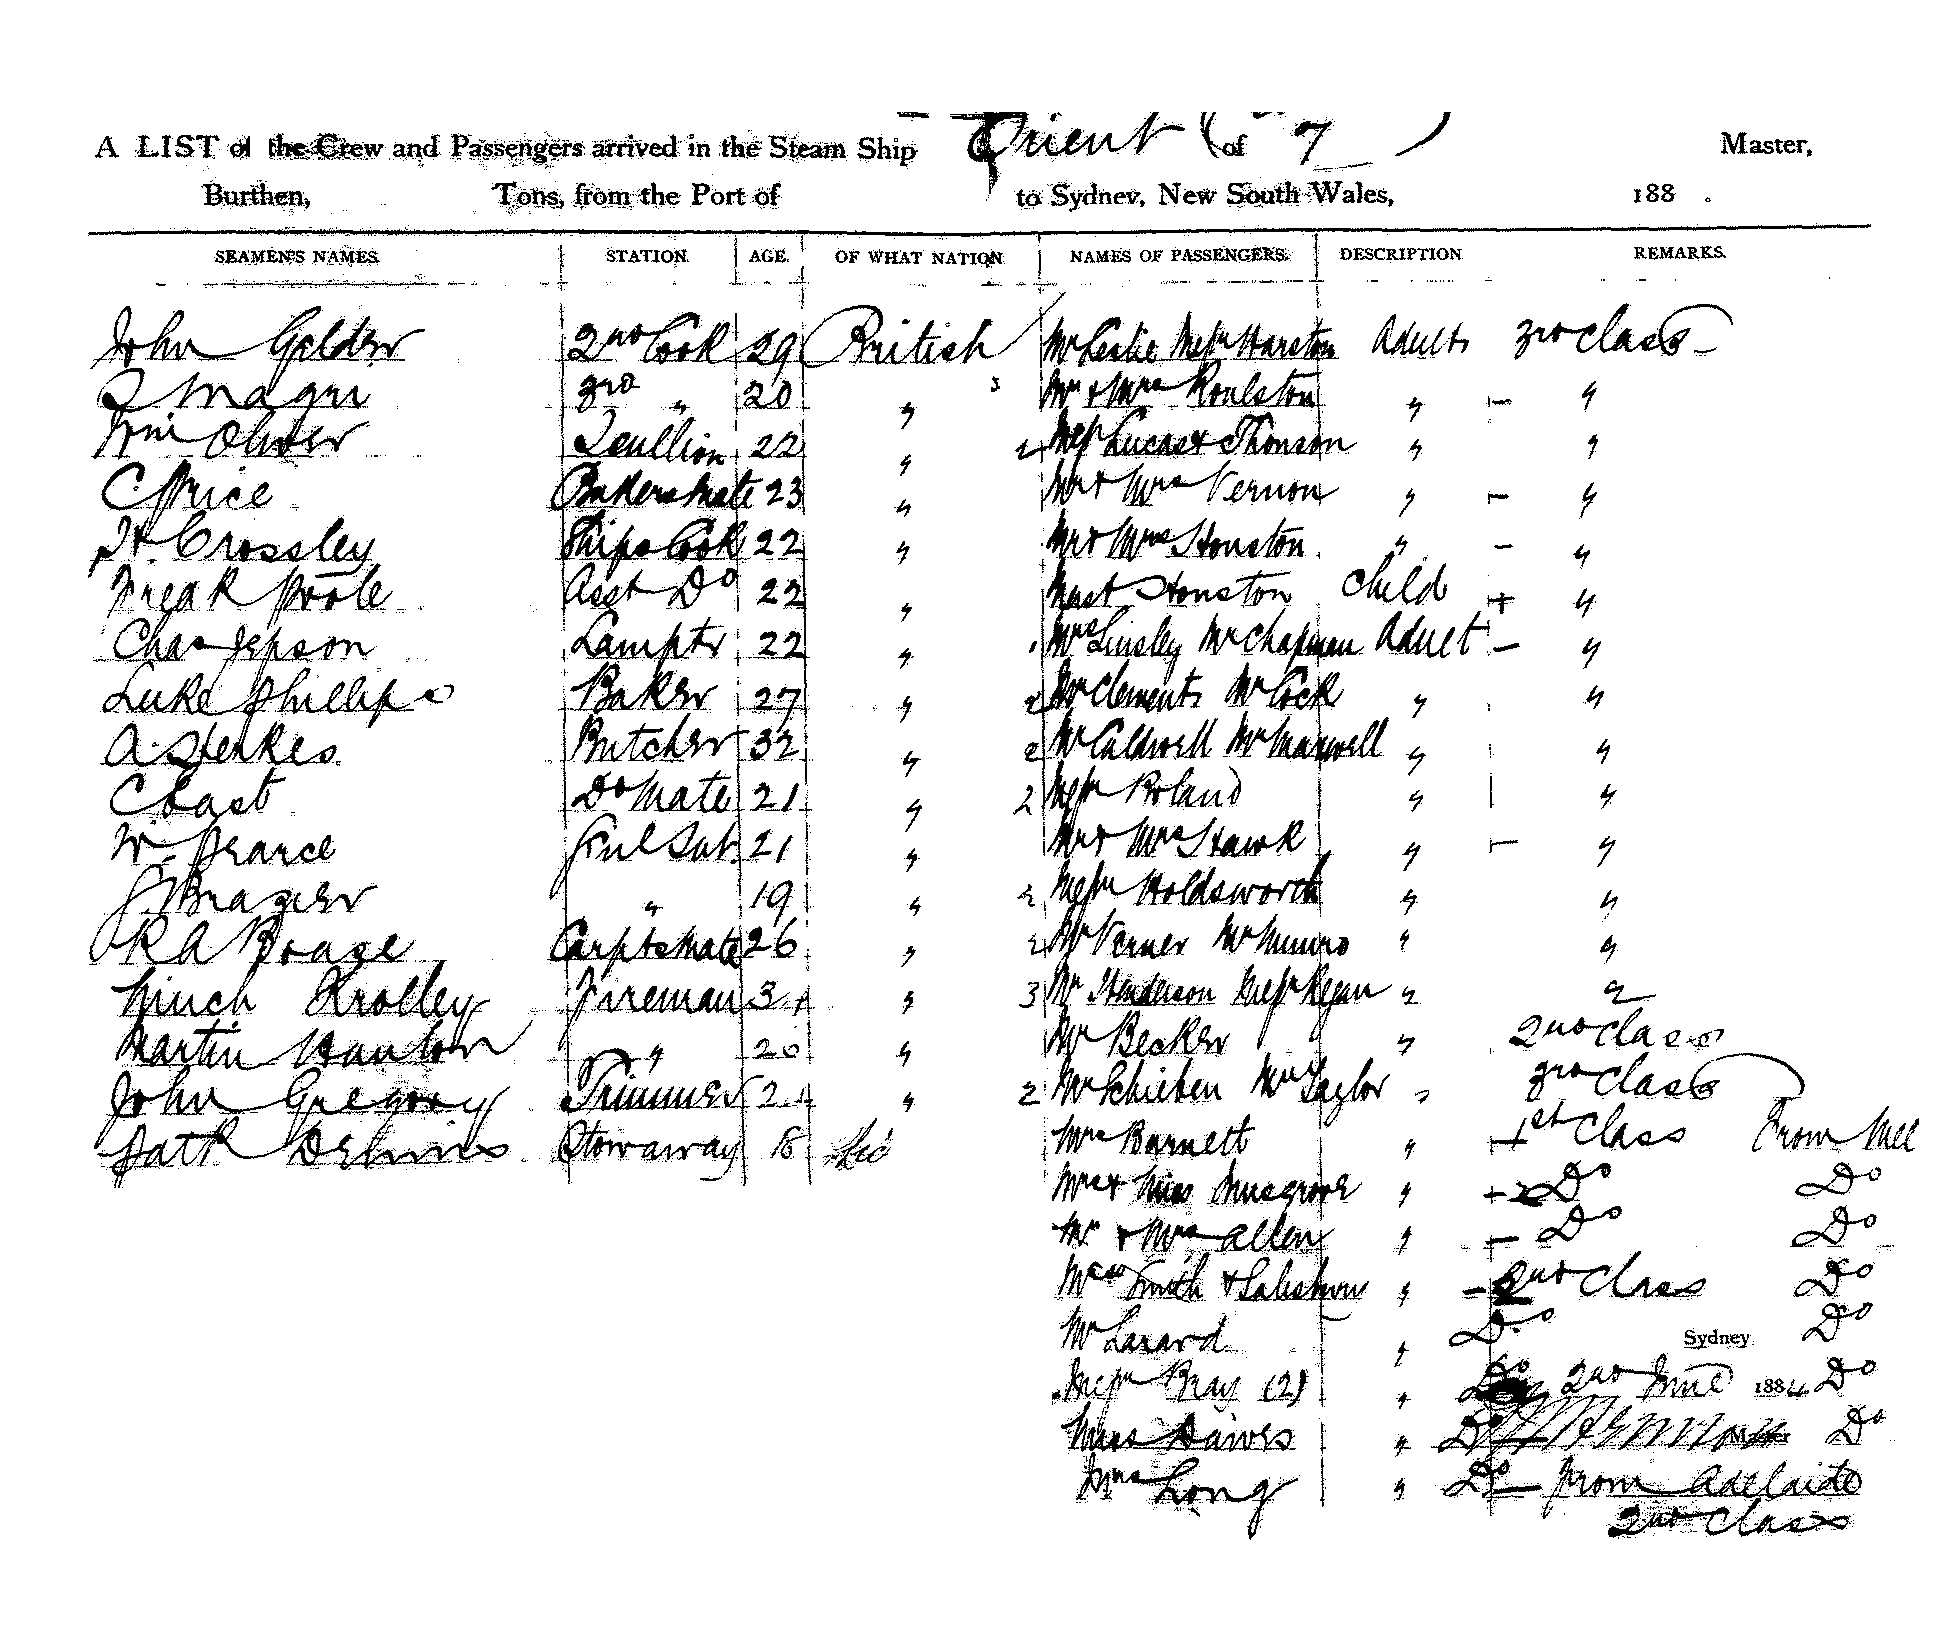 A LIST of the Crew and Passengers arrived in the Steam Ship Orient ( of 7 ) Master,
Burthen, Tons, from the Port of to Sydney, New South Wales, 188 .
SEAMEN'S NAMES. STATION. AGE. OF WHAT NATION. NAMES OF PASSENGERS. DESCRIPTION REMARKS.
John Gelder 2nd Cook 29 British Mr Leslie Messrs Harston Adults 3rd Class
3rd " 20 " Mr & Mrs Roulston " - "
Wm Oliver Scullion 22 " 2 Messrs Lucas & Thomson " "
C. Price Bakers Mate 23 " Mr & Mrs Vernon " - "
H. Crossley Ships Cook 22 " Mr & Mrs Houston " - "
Fredk Poole Asst Do 22 " Mast Houston Child + "
Chas Jepson Lamptr 22 " Mrs Linsley Mr Chapman Adult - "
Luke Phillips Baker 27 " 2 Mr Clements Mr Cock " "
A. Sherkes Butcher 32 " 2 Mr Caldwell Mr Maxwell " "
C East Do Mate 21 " 2 Messrs Boland " "
W. Pearce Genl Sert 21 " Mr & Mrs Hawk " - "
J Brazier " 19 " 2 Messrs Holdsworth " "
R A Boase Carpts Mate 26 " 2 Mr Verner Mr Munro " "
Krolley Fireman " 3 Mr Henderson Messrs Regan " "
Martin Hanlon " 20 " Mr Becker " 2nd Class
John Gregory Trimmer " 2 Mr Schieben Mrs Taylor " 3rd Class
Patk Dennis Stowaway 18 Mrs Barnett " 1st Class From Mel
Mrs & Miss Musgrove " - 2 Do Do
Mr & Mrs Allen " - Do Do
Smith & " - 2nd Class Do
Mr Lazard " Do Sydney Do
Messrs Bray (2) " Do 2nd June 1884 Do
Miss Dawes " Do Master Do
Mrs Long " Do - From Adelaide
2nd Class